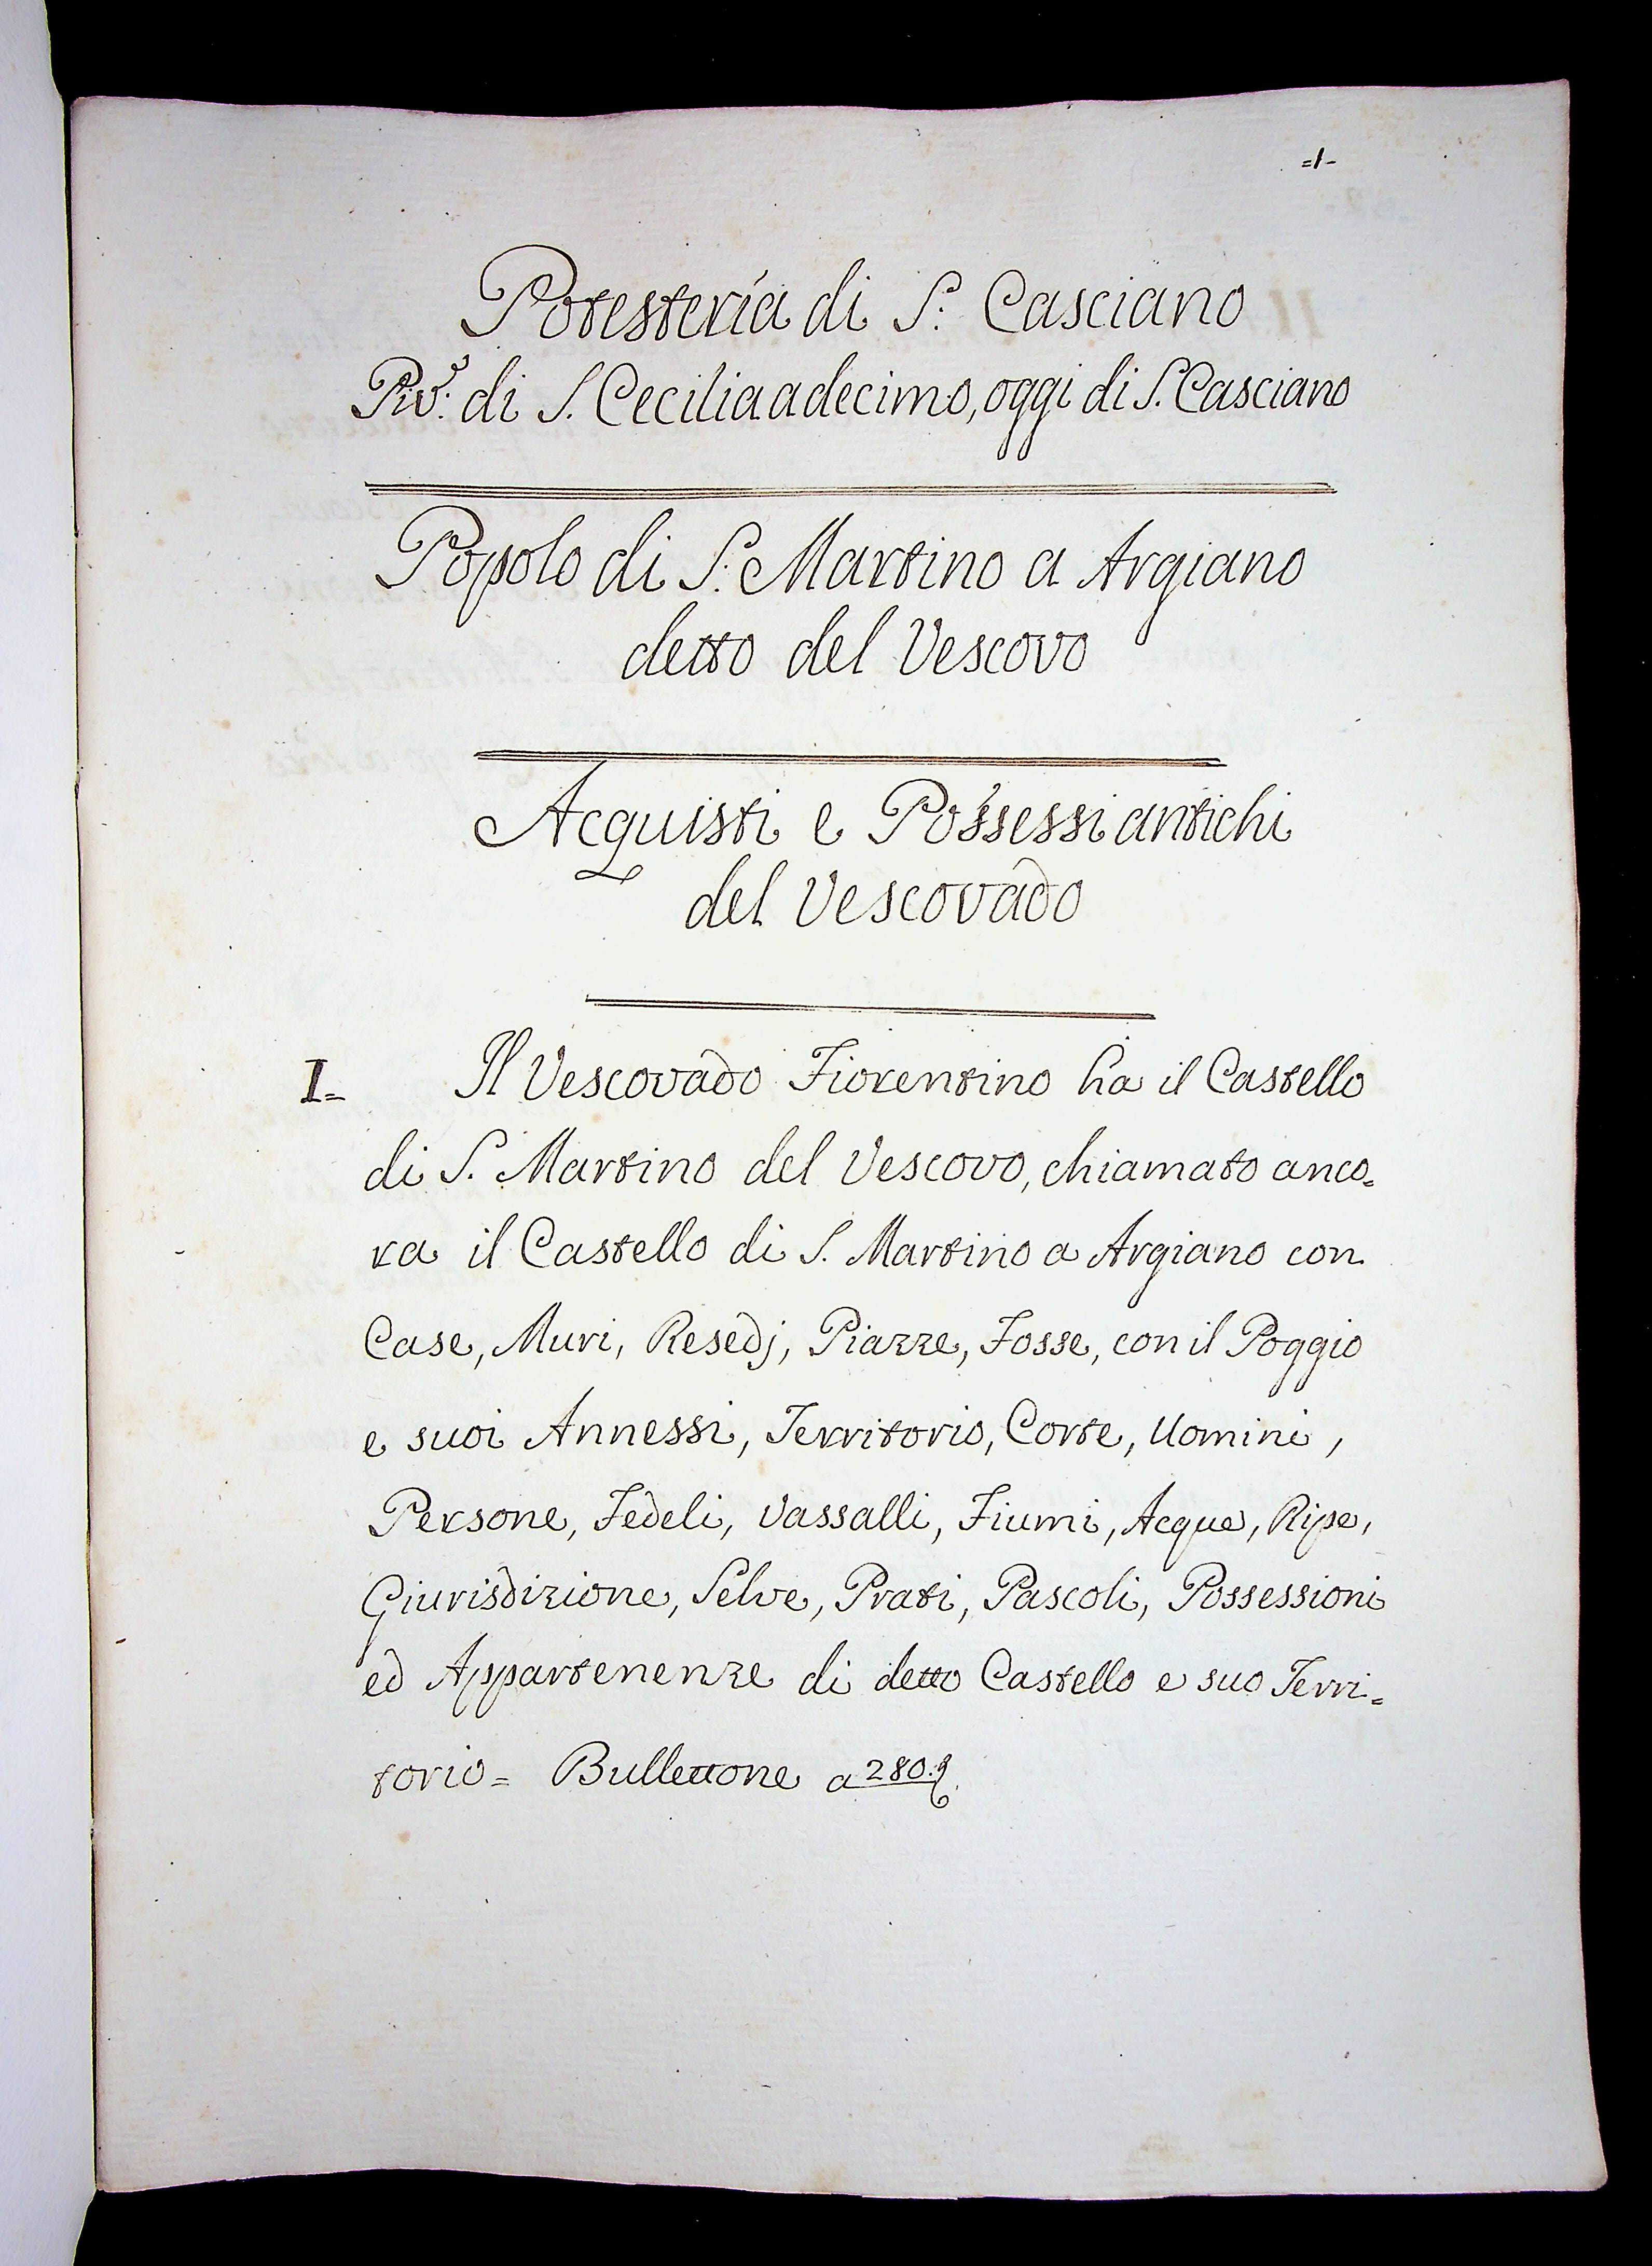 =1-
Potesteria di S: Casciano
Piv.e di S. Cecilia a decimo, oggi di S. Casciano
Popolo di S: Martino a Argiano
detto del Vescovo
Acquisti e Possessi antichi
del Vescovado
I= Il Vescovado Fiorentino ha il Castello
di S. Martino del Vescovo, chiamato anco=
ra il Castello di S. Martino a Argiano con
Case, Muri, Resedj, Piazze, Fosse, con il Poggio
e suoi Annessi, Territorio, Corte, Uomini,
Persone, Fedeli, Vassalli, Fiumi, Acque, Ripe,
Giurisdizione, Selve, Prati, Pascoli, Possessioni
ed Appartenenze di detto Castello e suo Terri=
torio= Bullettone a 280.